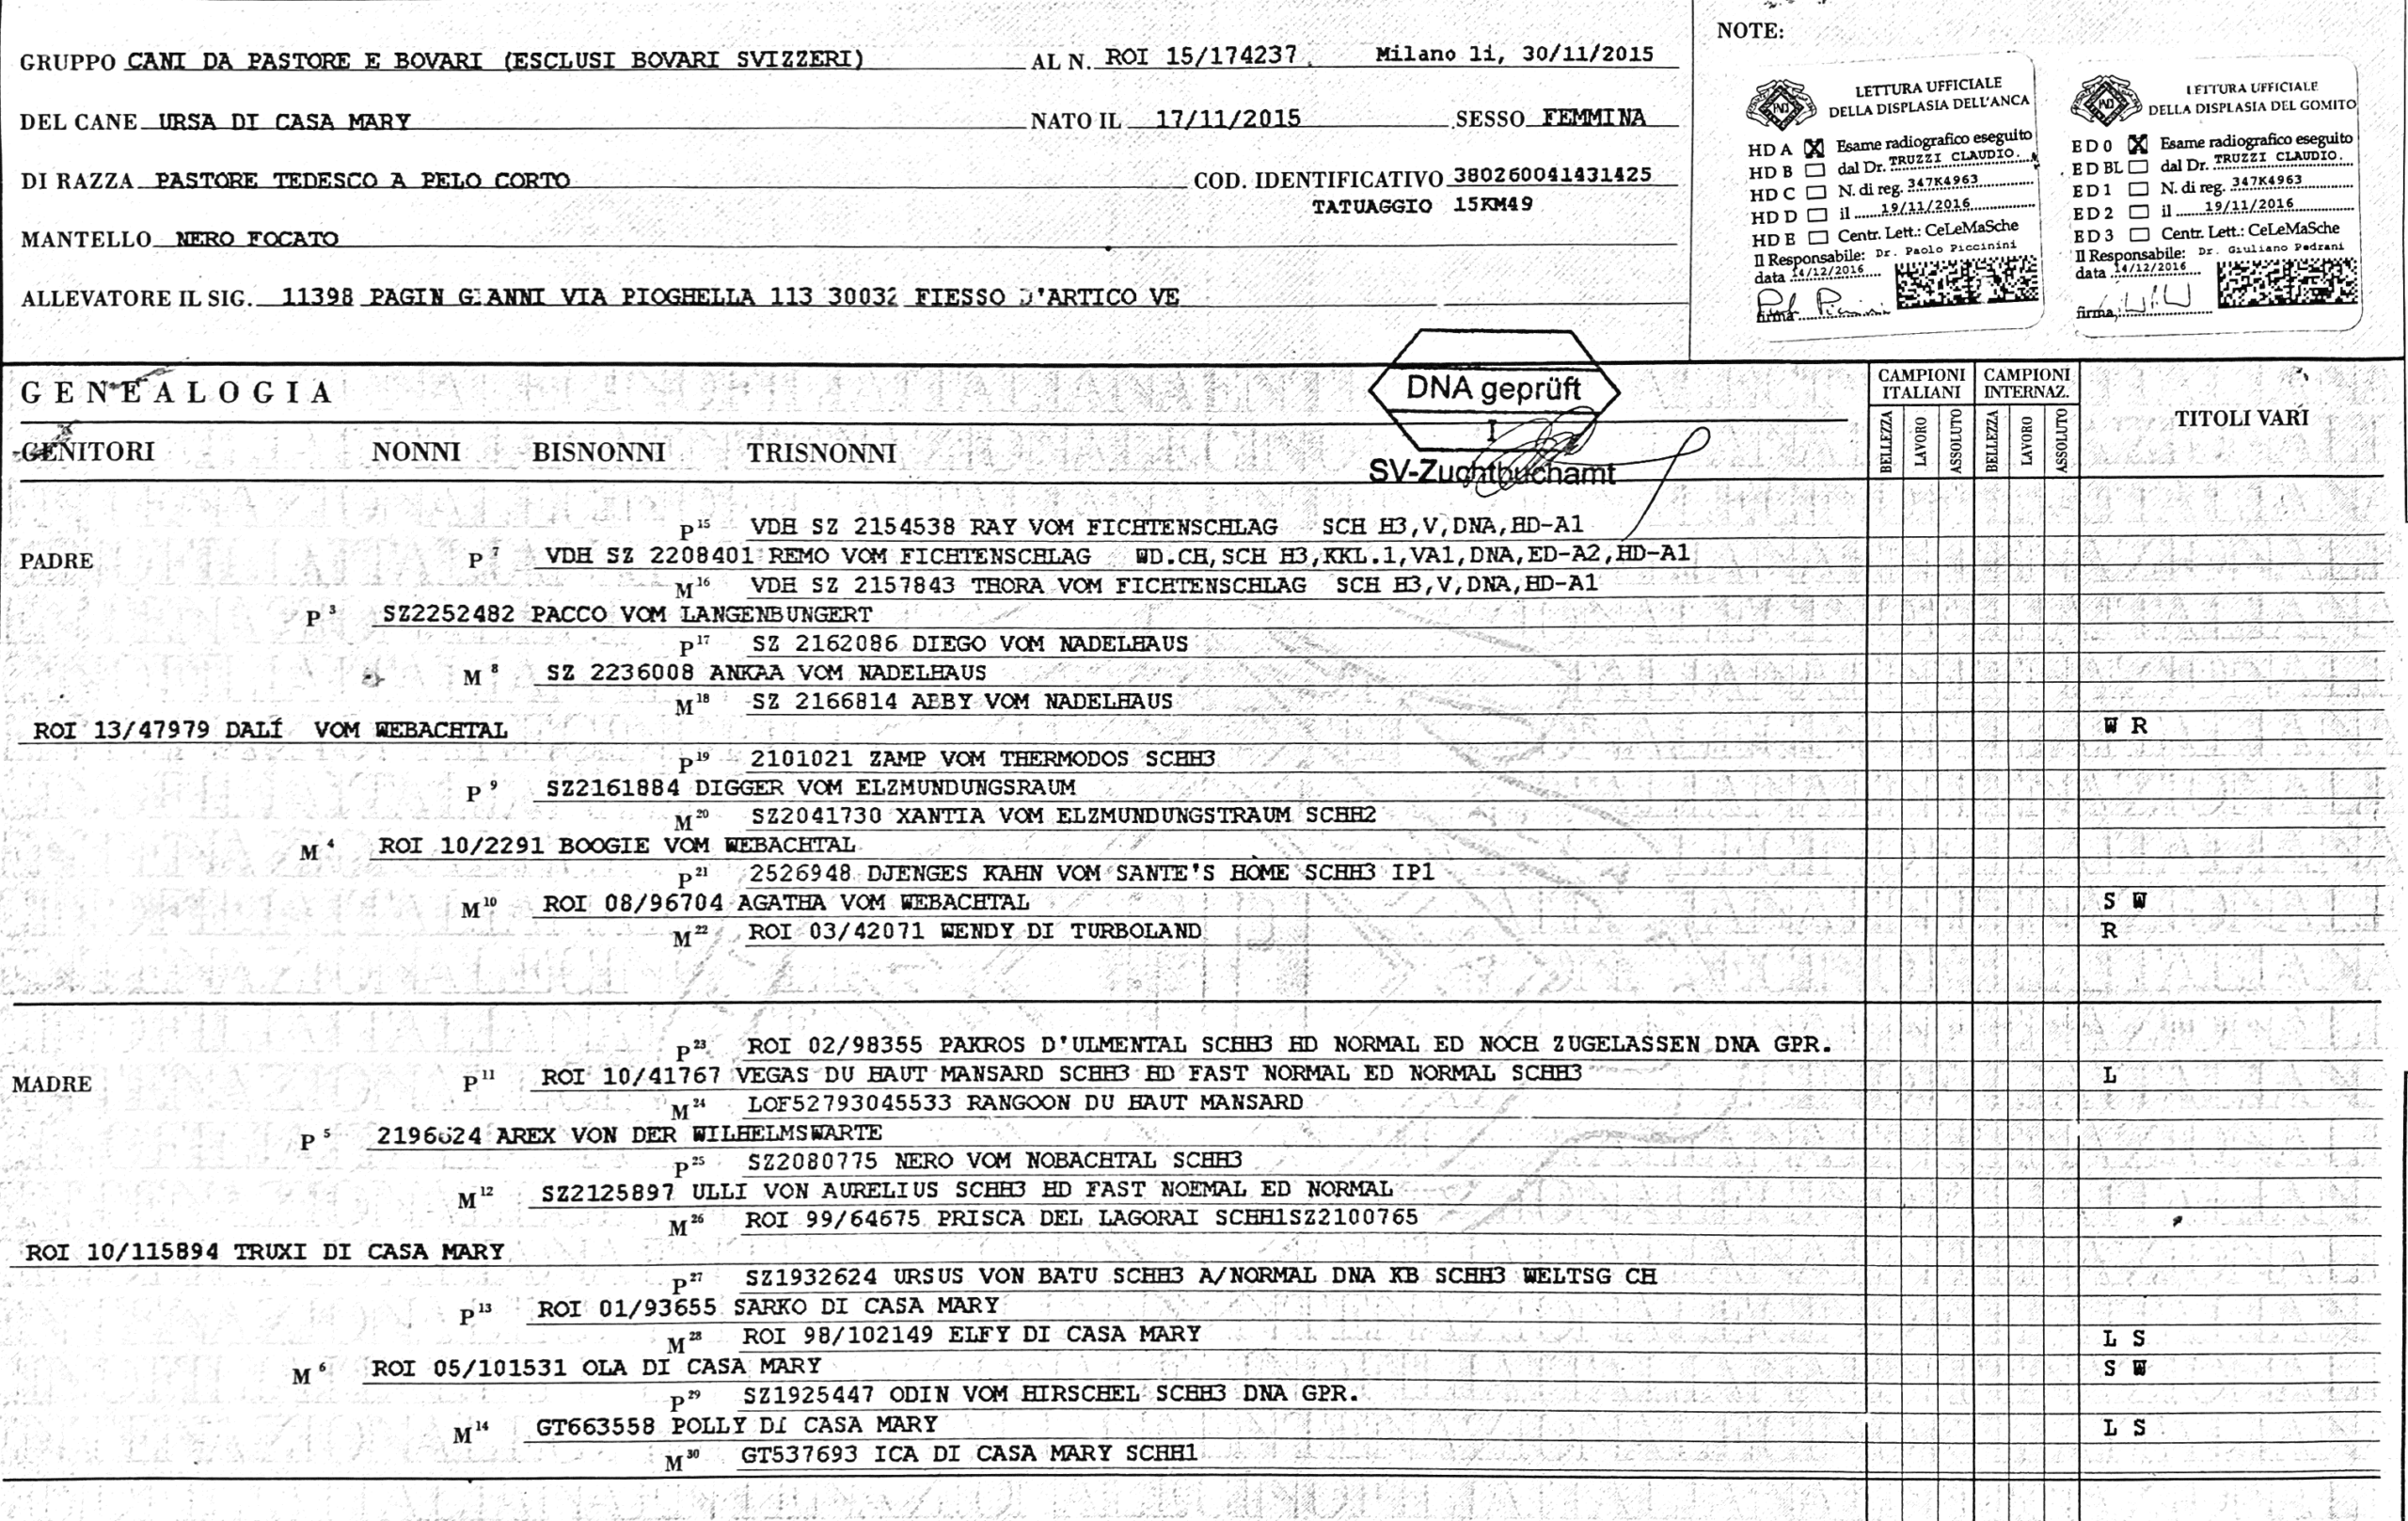 GRUPPO CANI DA PASTORE E BOVARI (ESCLUSI BOVARI SVIZZERI) AL N. ROI 15/174237 Milano li, 30/11/2015
DEL CANE URSA DI CASA MARY NATO IL 17/11/2015 SESSO FEMMINA
DI RAZZA PASTORE TEDESCO A PELO CORTO COD. IDENTIFICATIVO 380260041431425
TATUAGGIO 15KM49
MANTELLO NERO FOCATO
ALLEVATORE IL SIG. 11398 PAGIN GIANNI VIA PIOGHELLA 113 30032 FIESSO D'ARTICO VE
NOTE:
LETTURA UFFICIALE
DELLA DISPLASIA DELL'ANCA
HD A X Esame radiografico eseguito
HD B dal Dr. TRUZZI CLAUDIO.
HD C N. di reg. 347K4963
HD D il 19/11/2016
HD E Centr. Lett.: CeLeMaSche
Il Responsabile: Dr. Paolo Piccinini
data 14/12/2016
firma
LETTURA UFFICIALE
DELLA DISPLASIA DEL GOMITO
ED 0 X Esame radiografico eseguito
ED BL dal Dr. TRUZZI CLAUDIO.
ED 1 N. di reg. 347K4963
ED 2 il 19/11/2016
ED 3 Centr. Lett.: CeLeMaSche
Il Responsabile: Dr. Giuliano Pedrani
data 14/12/2016
firma
GENEALOGIA
DNA geprüft
I
SV-Zuchtbuchamt
CAMPIONI ITALIANI CAMPIONI INTERNAZ. TITOLI VARI
BELLEZZA LAVORO ASSOLUTO BELLEZZA LAVORO ASSOLUTO
GENITORI NONNI BISNONNI TRISNONNI
P 15 VDH SZ 2154538 RAY VOM FICHTENSCHLAG SCH H3,V,DNA,HD-A1
PADRE P 7 VDH SZ 2208401 REMO VOM FICHTENSCHLAG WD.CH,SCH H3,KKL.1,VA1,DNA,ED-A2,HD-A1
M 16 VDH SZ 2157843 THORA VOM FICHTENSCHLAG SCH H3,V,DNA,HD-A1
P 3 SZ2252482 PACCO VOM LANGENBUNGERT
P 17 SZ 2162086 DIEGO VOM NADELHAUS
M 8 SZ 2236008 ANKAA VOM NADELHAUS
M 18 SZ 2166814 AEBY VOM NADELHAUS
ROI 13/47979 DALÍ VOM WEBACHTAL W R
P 19 2101021 ZAMP VOM THERMODOS SCHH3
P 9 SZ2161884 DIGGER VOM ELZMUNDUNGSRAUM
M 20 SZ2041730 XANTIA VOM ELZMUNDUNGSTRAUM SCHH2
M 4 ROI 10/2291 BOOGIE VOM WEBACHTAL
P 21 2526948 DJENGES KAHN VOM SANTE'S HOME SCHH3 IP1
M 10 ROI 08/96704 AGATHA VOM WEBACHTAL S W
M 22 ROI 03/42071 WENDY DI TURBOLAND R
P 23 ROI 02/98355 PAKROS D'ULMENTAL SCHH3 HD NORMAL ED NOCH ZUGELASSEN DNA GPR.
MADRE P 11 ROI 10/41767 VEGAS DU HAUT MANSARD SCHH3 HD FAST NORMAL ED NORMAL SCHH3 L
M 24 LOF52793045533 RANGOON DU HAUT MANSARD
P 5 2196624 AREX VON DER WILHELMSWARTE
P 25 SZ2080775 NERO VOM NOBACHTAL SCHH3
M 12 SZ2125897 ULLI VON AURELIUS SCHH3 HD FAST NOEMAL ED NORMAL
M 26 ROI 99/64675 PRISCA DEL LAGORAI SCHH1SZ2100765
ROI 10/115894 TRUXI DI CASA MARY
P 27 SZ1932624 URSUS VON BATU SCHH3 A/NORMAL DNA KB SCHH3 WELTSG CH
P 13 ROI 01/93655 SARKO DI CASA MARY
M 28 ROI 98/102149 ELFY DI CASA MARY L S
M 6 ROI 05/101531 OLA DI CASA MARY S W
P 29 SZ1925447 ODIN VOM HIRSCHEL SCHH3 DNA GPR.
M 14 GT663558 POLLY DI CASA MARY L S
M 30 GT537693 ICA DI CASA MARY SCHH1